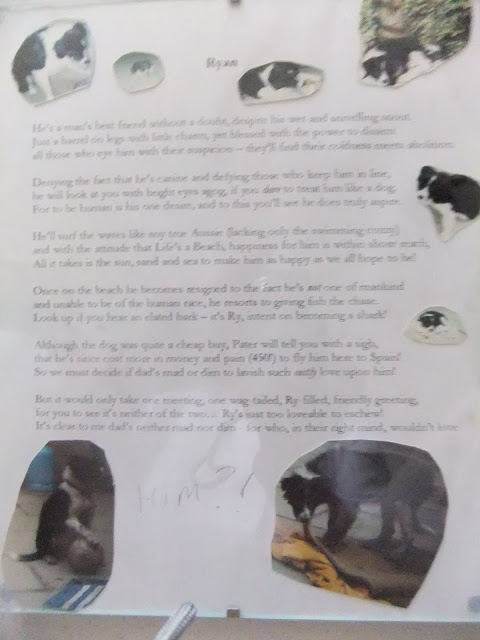 Ryan
He's a man's best friend without a doubt, despite his wet and smelling snout.
Just a barrel on legs with little charm, yet blessed with the power to disarm
all those who eye him with their suspicion – they'll find their coldness meets abolition.
Denying the fact that he's canine and defying those who keep him in line,
he will look at you with bright eyes agog, if you dare to treat him like a dog.
For to be human is his one desire, and to this you'll see he does truly aspire.
He'll surf the waves like any true Aussie (lacking only the swimming-cozzy)
and with the attitude that Life's a Beach, happiness for him is within short reach,
All it takes is the sun, sand and sea to make him as happy as we all hope to be!
Once on the beach he becomes resigned to the fact he's not one of mankind
and unable to be of the human race, he resorts to giving fish the chase.
Look up if you hear an elated bark – it's Ry, intent on becoming a shark!
Although the dog was quite a cheap buy, Pater will tell you with a sigh,
that he's since cost more in money and pain (450!) to fly him here to Spain!
So we must decide if dad's mad or dim to lavish such costly love upon him!
But it would only take one meeting, one wag-tailed, Ry filled, friendly greeting,
for you to see it's neither of the two… Ry's just too loveable to eschew!
It's clear to me dad's neither mad nor dim - for who, in their right mind, wouldn't love
HIM?!